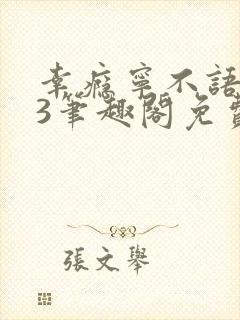 幸瘾寧不語
3筆趣閣免費
張文舉